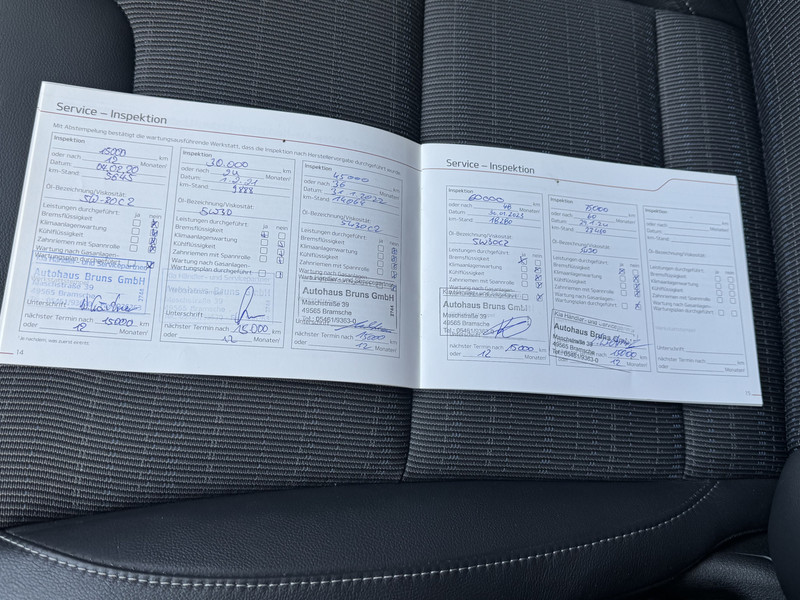 Service – Inspektion
Mit Abstempelung bestätigt die wartungsausführende Werkstatt, dass die Inspektion nach Herstellervorgabe durchgeführt wurde.
Inspektion:
15000 km
oder nach 12 Monaten¹
Datum: 04.02.20
km-Stand: 3645
Öl-Bezeichnung/Viskosität:
Leistungen durchgeführt: ja nein
Bremsflüssigkeit
Klimaanlagenwartung
Kühlflüssigkeit
Zahnriemen mit Spannrolle
Wartung nach Gasanlagen-
Autohaus Bruns GmbH
Maschstraße 39
49565 Bramsche
Unterschrift
nächster Termin nach 15000 km
oder 12 Monaten¹
14
Inspektion:
30.000 km
oder nach 24 Monaten¹
Datum: 1.2.21
km-Stand: 9888
Öl-Bezeichnung/Viskosität:
5W30
Leistungen durchgeführt: ja nein
Bremsflüssigkeit
Klimaanlagenwartung
Kühlflüssigkeit
Zahnriemen mit Spannrolle
Wartung nach Gasanlagen-
Wartungsplan durchgeführt
Unterschrift
nächster Termin nach 15.000 km
oder 12 Monaten¹
Inspektion:
45000 km
oder nach 36 Monaten¹
Datum: 31.1.2022
km-Stand: 14068
Öl-Bezeichnung/Viskosität:
5W30C2
Leistungen durchgeführt: ja nein
Bremsflüssigkeit
Klimaanlagenwartung
Kühlflüssigkeit
Zahnriemen mit Spannrolle
Wartung nach Gasanlagen-
Autohaus Bruns GmbH
Maschstraße 39
49565 Bramsche
Tel.: 05461/9363-0
nächster Termin nach 15000 km
oder 12 Monaten¹
Service – Inspektion
Inspektion:
60000 km
oder nach 48 Monaten¹
Datum:
km-Stand: 18280
Öl-Bezeichnung/Viskosität:
5W30C2
Leistungen durchgeführt: ja nein
Bremsflüssigkeit
Klimaanlagenwartung
Kühlflüssigkeit
Zahnriemen mit Spannrolle
Wartung nach Gasanlagen-
Maschstraße 39
49565 Bramsche
Tel.: 05461/9363-0
nächster Termin nach 15000 km
oder 12 Monaten¹
Inspektion:
75000 km
oder nach 60 Monaten¹
Datum:
km-Stand:
Öl-Bezeichnung/Viskosität:
Leistungen durchgeführt: ja nein
Bremsflüssigkeit
Klimaanlagenwartung
Kühlflüssigkeit
Zahnriemen mit Spannrolle
Wartung nach Gasanlagen-
Autohaus Bruns GmbH
Maschstraße 39
49565 Bramsche
Tel.: 05461/9363-0
15000 km
12 Monaten¹
Inspektion:
km
oder nach Monaten¹
Datum:
km-Stand:
Öl-Bezeichnung/Viskosität:
Leistungen durchgeführt: ja nein
Bremsflüssigkeit
Klimaanlagenwartung
Kühlflüssigkeit
Zahnriemen mit Spannrolle
Wartung nach Gasanlagen-
Wartungsplan durchgeführt
Unterschrift
nächster Termin nach km
oder Monaten¹
15